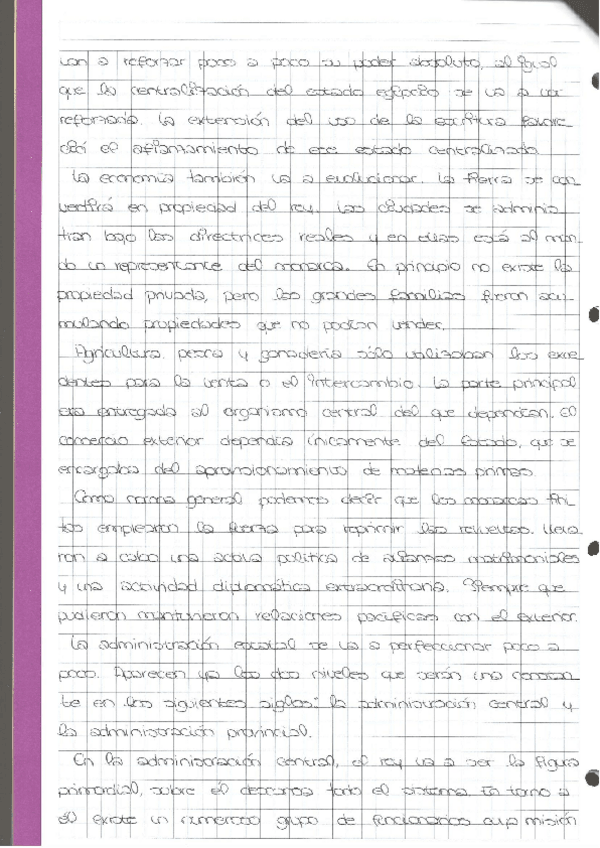 van a reforzar poco a poco su poder absoluto, al igual
que la centralización del estado egipcio se va a ver
reforzada. La extensión del uso de la escritura favore-
cerá el afianzamiento de ese estado centralizado.
La economía también va a evolucionar. La tierra se con
vertirá en propiedad del rey. Las ciudades se adminis
tran bajo las directrices reales y en ellas está al man-
do un representante del monarca. En principio no existe la
propiedad privada, pero las grandes familias fueron acu-
mulando propiedades que no podían vender.
Agricultura, pesca y ganadería sólo utilizaban los exce
dentes para la venta o el intercambio. La parte principal
era entregada al organismo central del que dependían. El
comercio exterior dependía únicamente del Estado, que se
encargaba del aprovisionamiento de materias primas.
Como norma general podemos decir que los monarcas tini-
tas emplearon la fuerza para reprimir las revueltas. Lleva
ron a cabo una activa política de alianzas matrimoniales
y una actividad diplomática extraordinaria. Siempre que
pudieron mantuvieron relaciones pacíficas con el exterior.
La administración estatal se va a perfeccionar poco a
poco. Aparecen ya los dos niveles que serán una constan
te en los siguientes siglos: la administración central y
la administración provincial.
En la administración central, el rey va a ser la figura
primordial, sobre él descansa todo el sistema. En torno a
él existe un numeroso grupo de funcionarios cuya misión